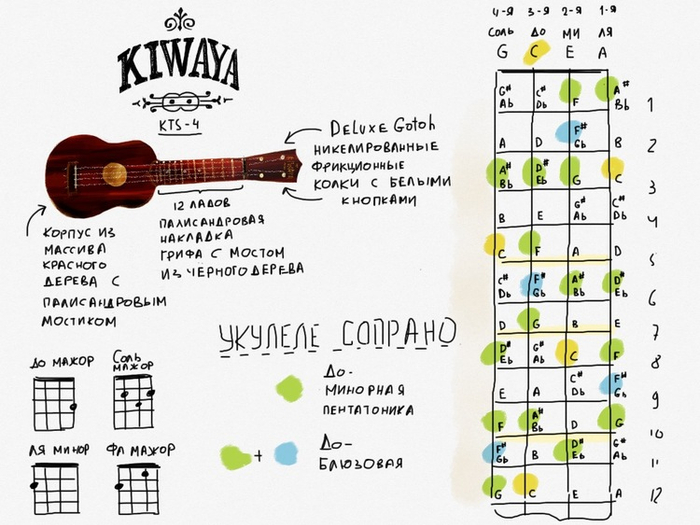 KIWAYA
KTS-4
DELUXE Gotoh
НИКЕЛИРОВАННЫЕ
ФРИКЦИОННЫЕ
КОЛКИ С БЕЛЫМИ
КНОПКАМИ
12 ЛАДОВ
ПАЛИСАНДРОВАЯ
НАКЛАДКА
ГРИФА С МОСТОМ
ИЗ ЧЕРНОГО ДЕРЕВА
КОРПУС ИЗ
МАССИВА
КРАСНОГО
ДЕРЕВА С
ПАЛИСАНДРОВЫМ
МОСТИКОМ
УКУЛЕЛЕ СОПРАНО
ДО-
МИНОРНАЯ
ПЕНТАТОНИКА
+
ДО-
БЛЮЗОВАЯ
ДО МАЖОР
СОЛЬ
МАЖОР
ЛЯ МИНОР
ФА МАЖОР
4-Я 3-Я 2-Я 1-Я
СОЛЬ ДО МИ ЛЯ
G C E A
G# C# A#
Ab Db F Bb 1
F#
A D Gb B 2
A# D#
Bb Eb G C 3
G# C#
B E Ab Db 4
C F A D 5
C# F# A# D#
Db Gb Bb Eb 6
D G B E 7
D# G#
Eb Ab C F 8
C# F#
E A Db Gb 9
A#
F Bb D G 10
F# D# G#
Gb B Eb Ab 11
G C E A 12